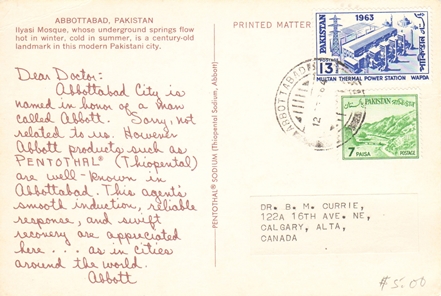 ABBOTTABAD, PAKISTAN
Ilyasi Mosque, whose underground springs flow
hot in winter, cold in summer, is a century-old
landmark in this modern Pakistani city.
Dear Doctor:
Abbottabad City is
named in honor of a man
called Abbott. Sorry, not
related to us. However
Abbott products such as
PENTOTHAL® (Thiopental)
are well-known in
Abbottabad. This agent's
smooth induction, reliable
response, and swift
recovery are appreciated
here . . . as in cities
around the world.
Abbott
PENTOTHAL® SODIUM (Thiopental Sodium, Abbott)
PRINTED MATTER
1963
PAKISTAN
13
MULTAN THERMAL POWER STATION WAPDA
ABBOTTABAD
12
PAKISTAN
7 PAISA
POSTAGE
DR. B. M. CURRIE,
122A 16TH AVE. NE,
CALGARY, ALTA,
CANADA
$5.00